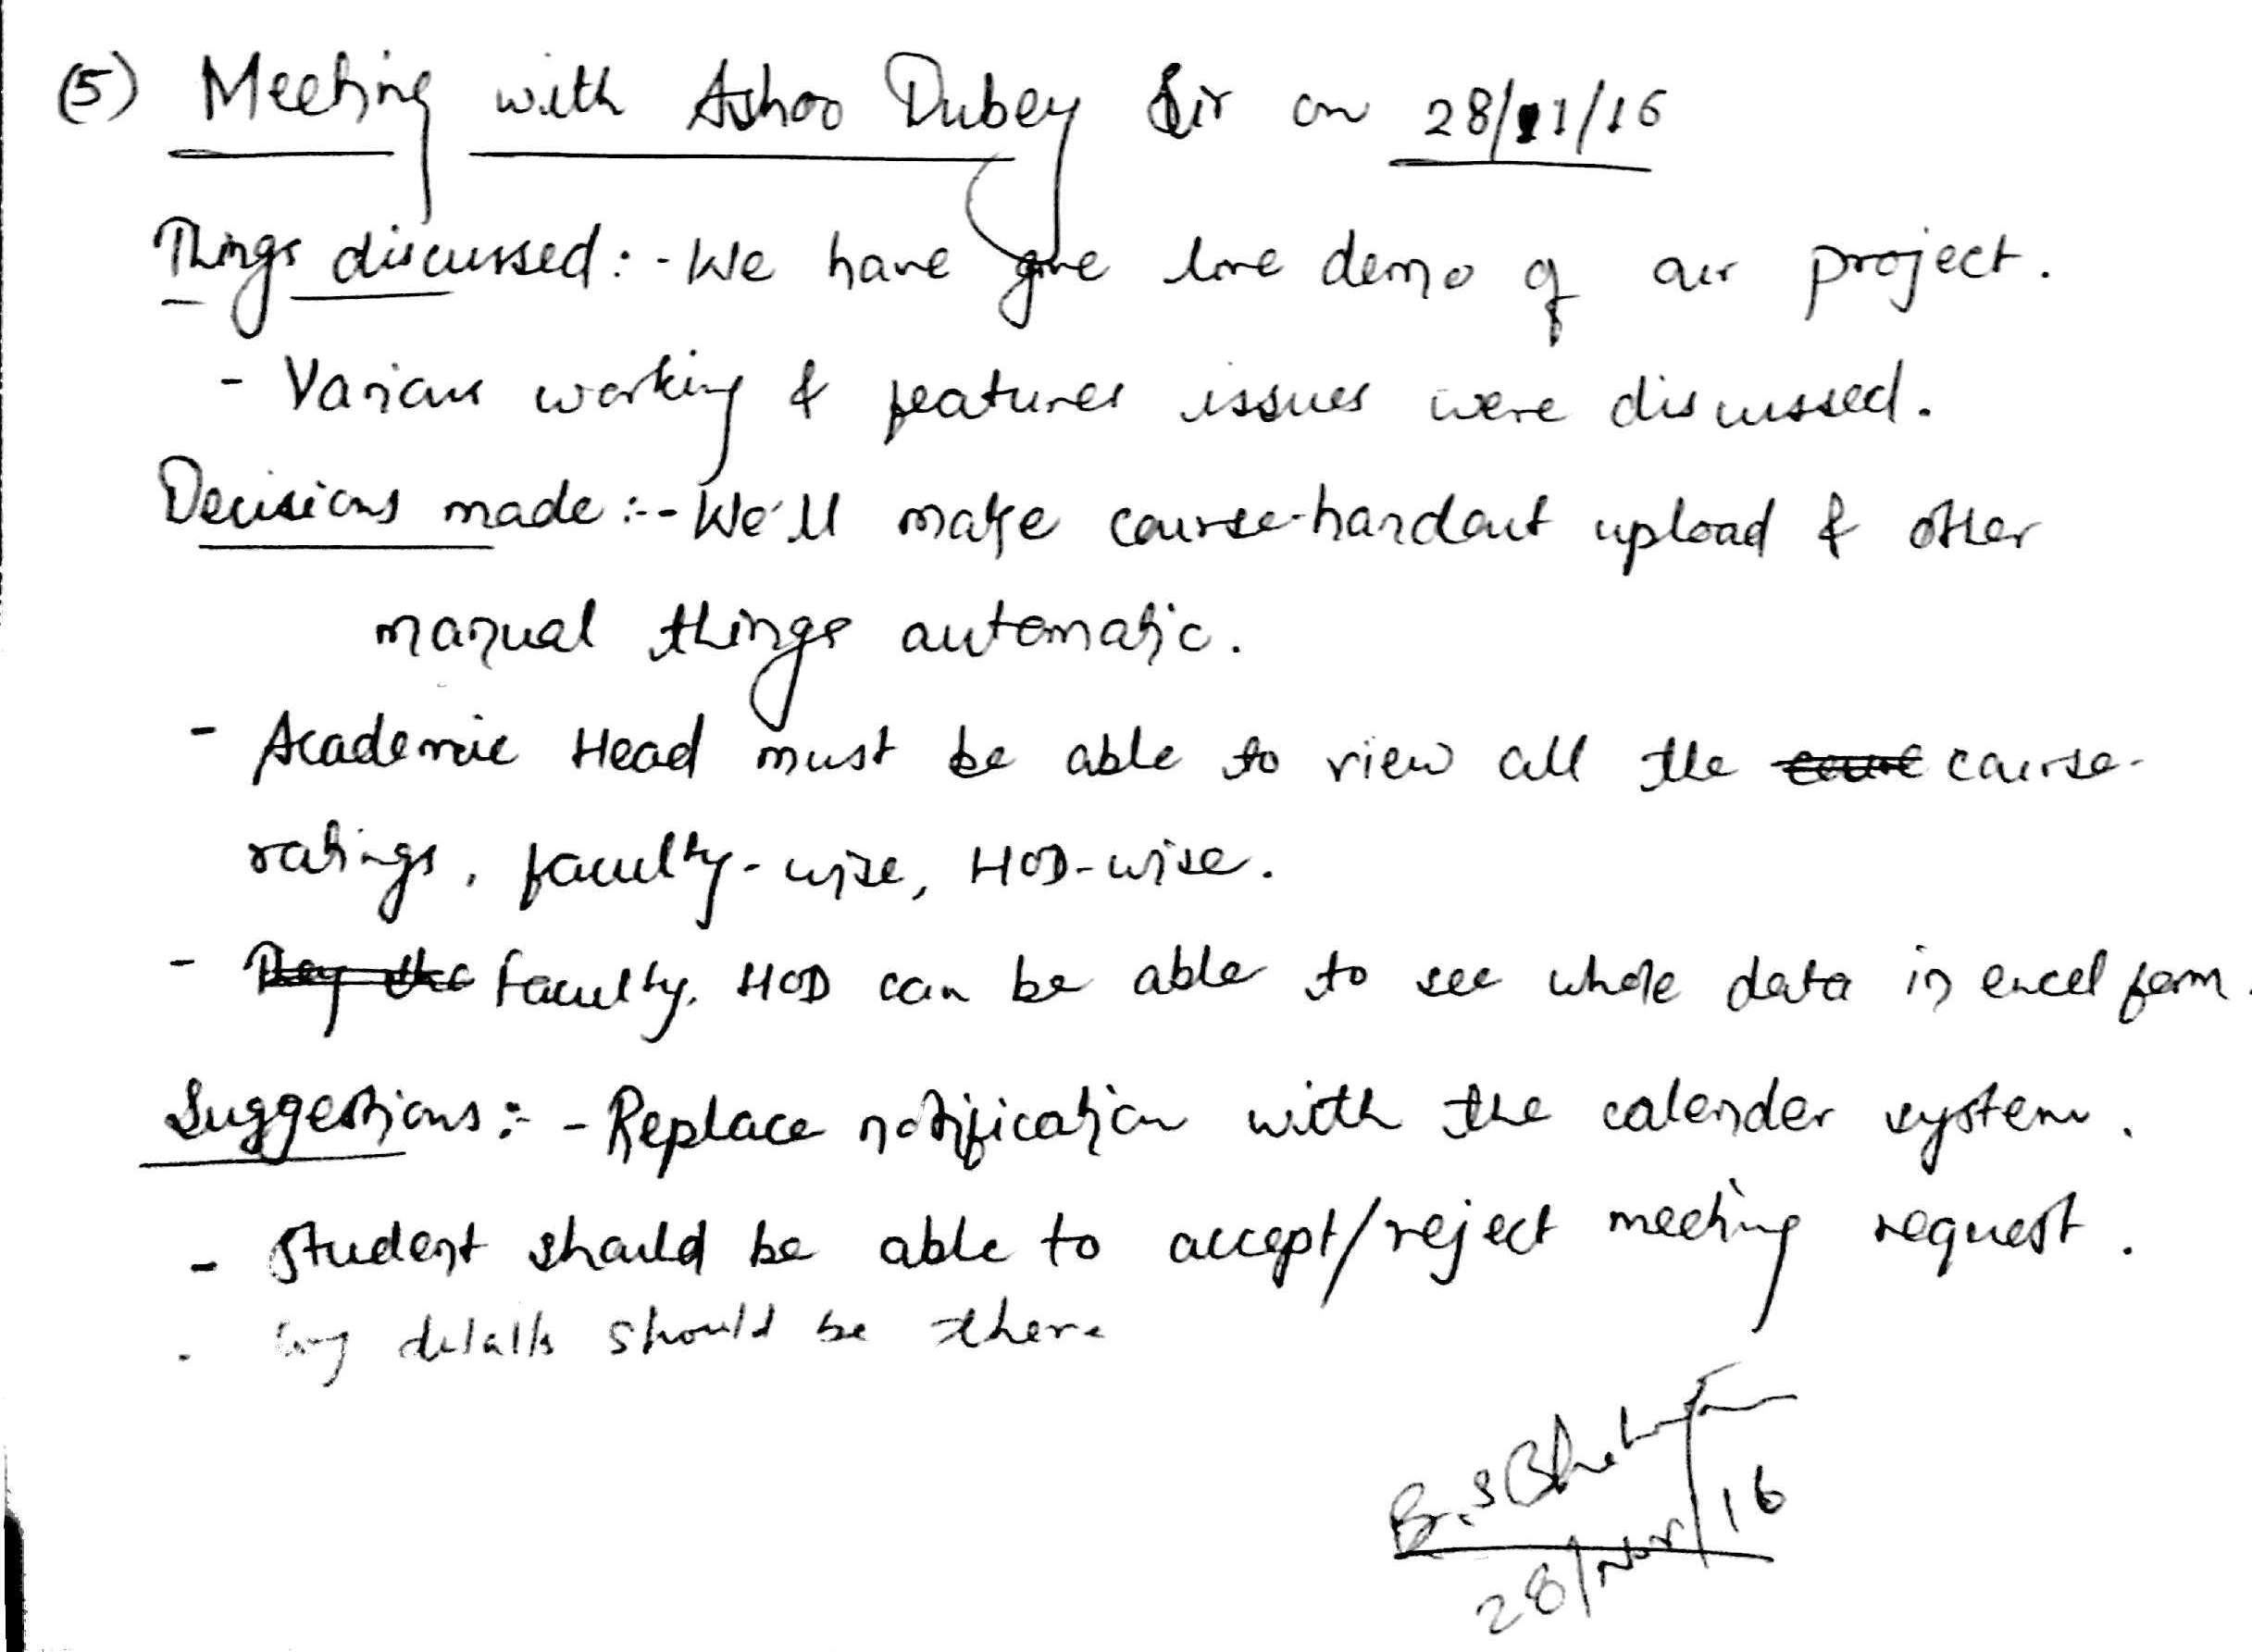 (5) Meeting with Ashoo Dubey Sir on 28/11/16
Things discussed :- We have give live demo of our project.
- Various working & features issues were discussed.
Decisions made :-- We'll make course-handout upload & other
manual things automatic.
- Academic Head must be able to view all the course-
ratings, faculty-wise, HOD-wise.
- faculty, HOD can be able to see whole data in excel form.
Suggestions :- - Replace notification with the calender system.
- Student should be able to accept/reject meeting request.
. log details should be there
B.S
28/Nov/16